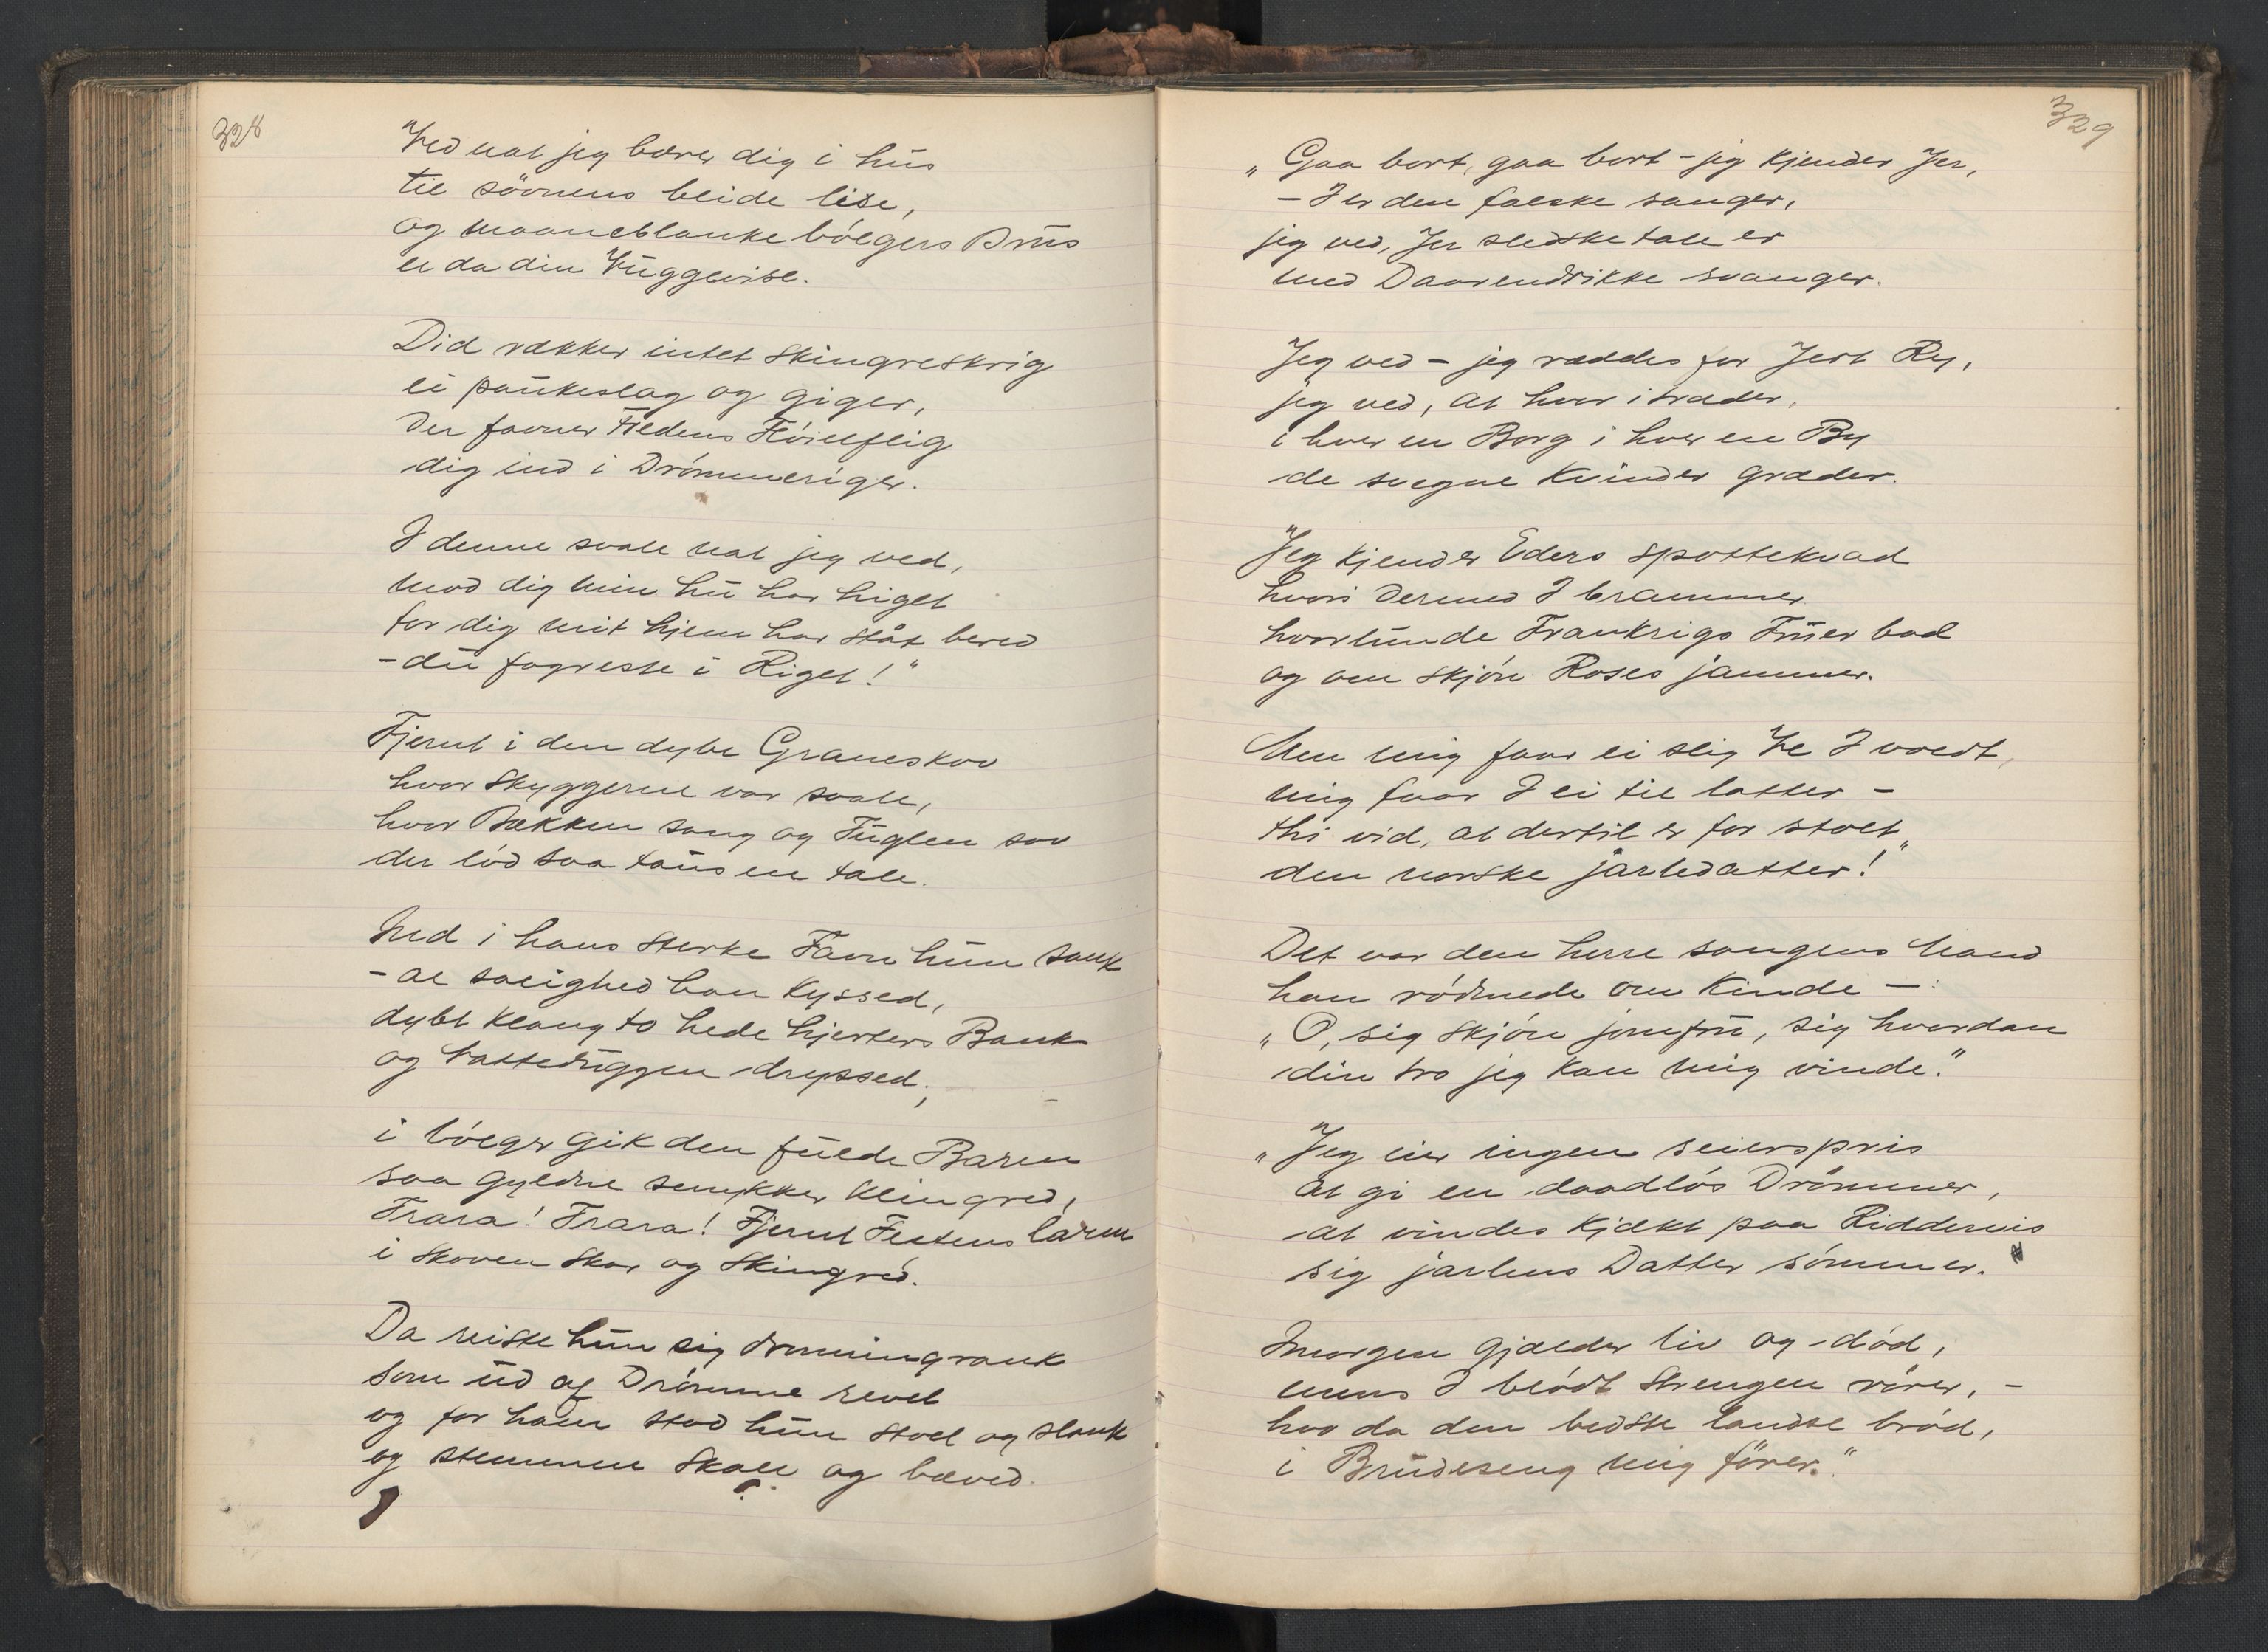 328
Ved nat jeg bærer dig i hus
til søvnens blide lise,
og maaneblanke bølgers Brus
er da din Vuggevise.
Did rækker intet Skingreskrig
ei paukeslag og giger,
Der favner Fredens Fløielsflig
dig ind i Drømmeriger.
I denne svale nat jeg ved,
mod dig min hu har higet
for dig mit hjem har ståt bered
- du fagreste i Riget!"
Fjernt i den dybe Graneskov
hvor Skyggerne var svale,
hvor Bækken sang og Fuglen sov
der lød saa taus en tale.
Ned i hans Sterke Favn hun sank
- al salighed han Kyssed,
dybt Klang to hede hjerters Bank
og Natteduggen dryssed;
i bølger gik den fulde Barm
saa gyldne smykker Klingred,
Trara! Trara! Fjernt Festens larm
i Skoven Skar og Skingred.
Da reiste hun sig dronningrank
som ud af Drømme revet
og for ham stod hun stolt og slank
og stemmen Skalv og bæved.
329
„Gaa bort, gaa bort - jeg Kjender Jer,
- I er den falske sanger,
jeg ved, Jer sledske tale er
med Daarendrikke svanger.
Jeg ved - jeg ræddes for Jert Ry,
jeg ved, at hvor i træder,
i hver en Borg i hver en By
de svegne Kvinder græder.
Jeg Kjender Eders Spottekvad
hvori dermed I brammer
hvorlunde Frankrigs Fruer bad
og om Skjøn Roses jammer.
Men mig faar ei slig Ve I voldt,
mig faar I ei til latter -
thi vid, at dertil er for stolt
den norske jarledatter!"
Det var den herre sangens Mand
han rødmede om Kinde -:
„O, sig Skjøn jomfru, sig hvordan
din tro jeg Kan mig vinde."
„Jeg eier ingen seierspris
at gi en daadløs Drømmer,
at vindes Kjækt paa Riddervis
sig jarlens Datter sømmer.
Imorgen gjælder liv og død,
mens I blødt Strengen rører, -
hvo da den bedste landse brød,
i Brudeseng mig fører."